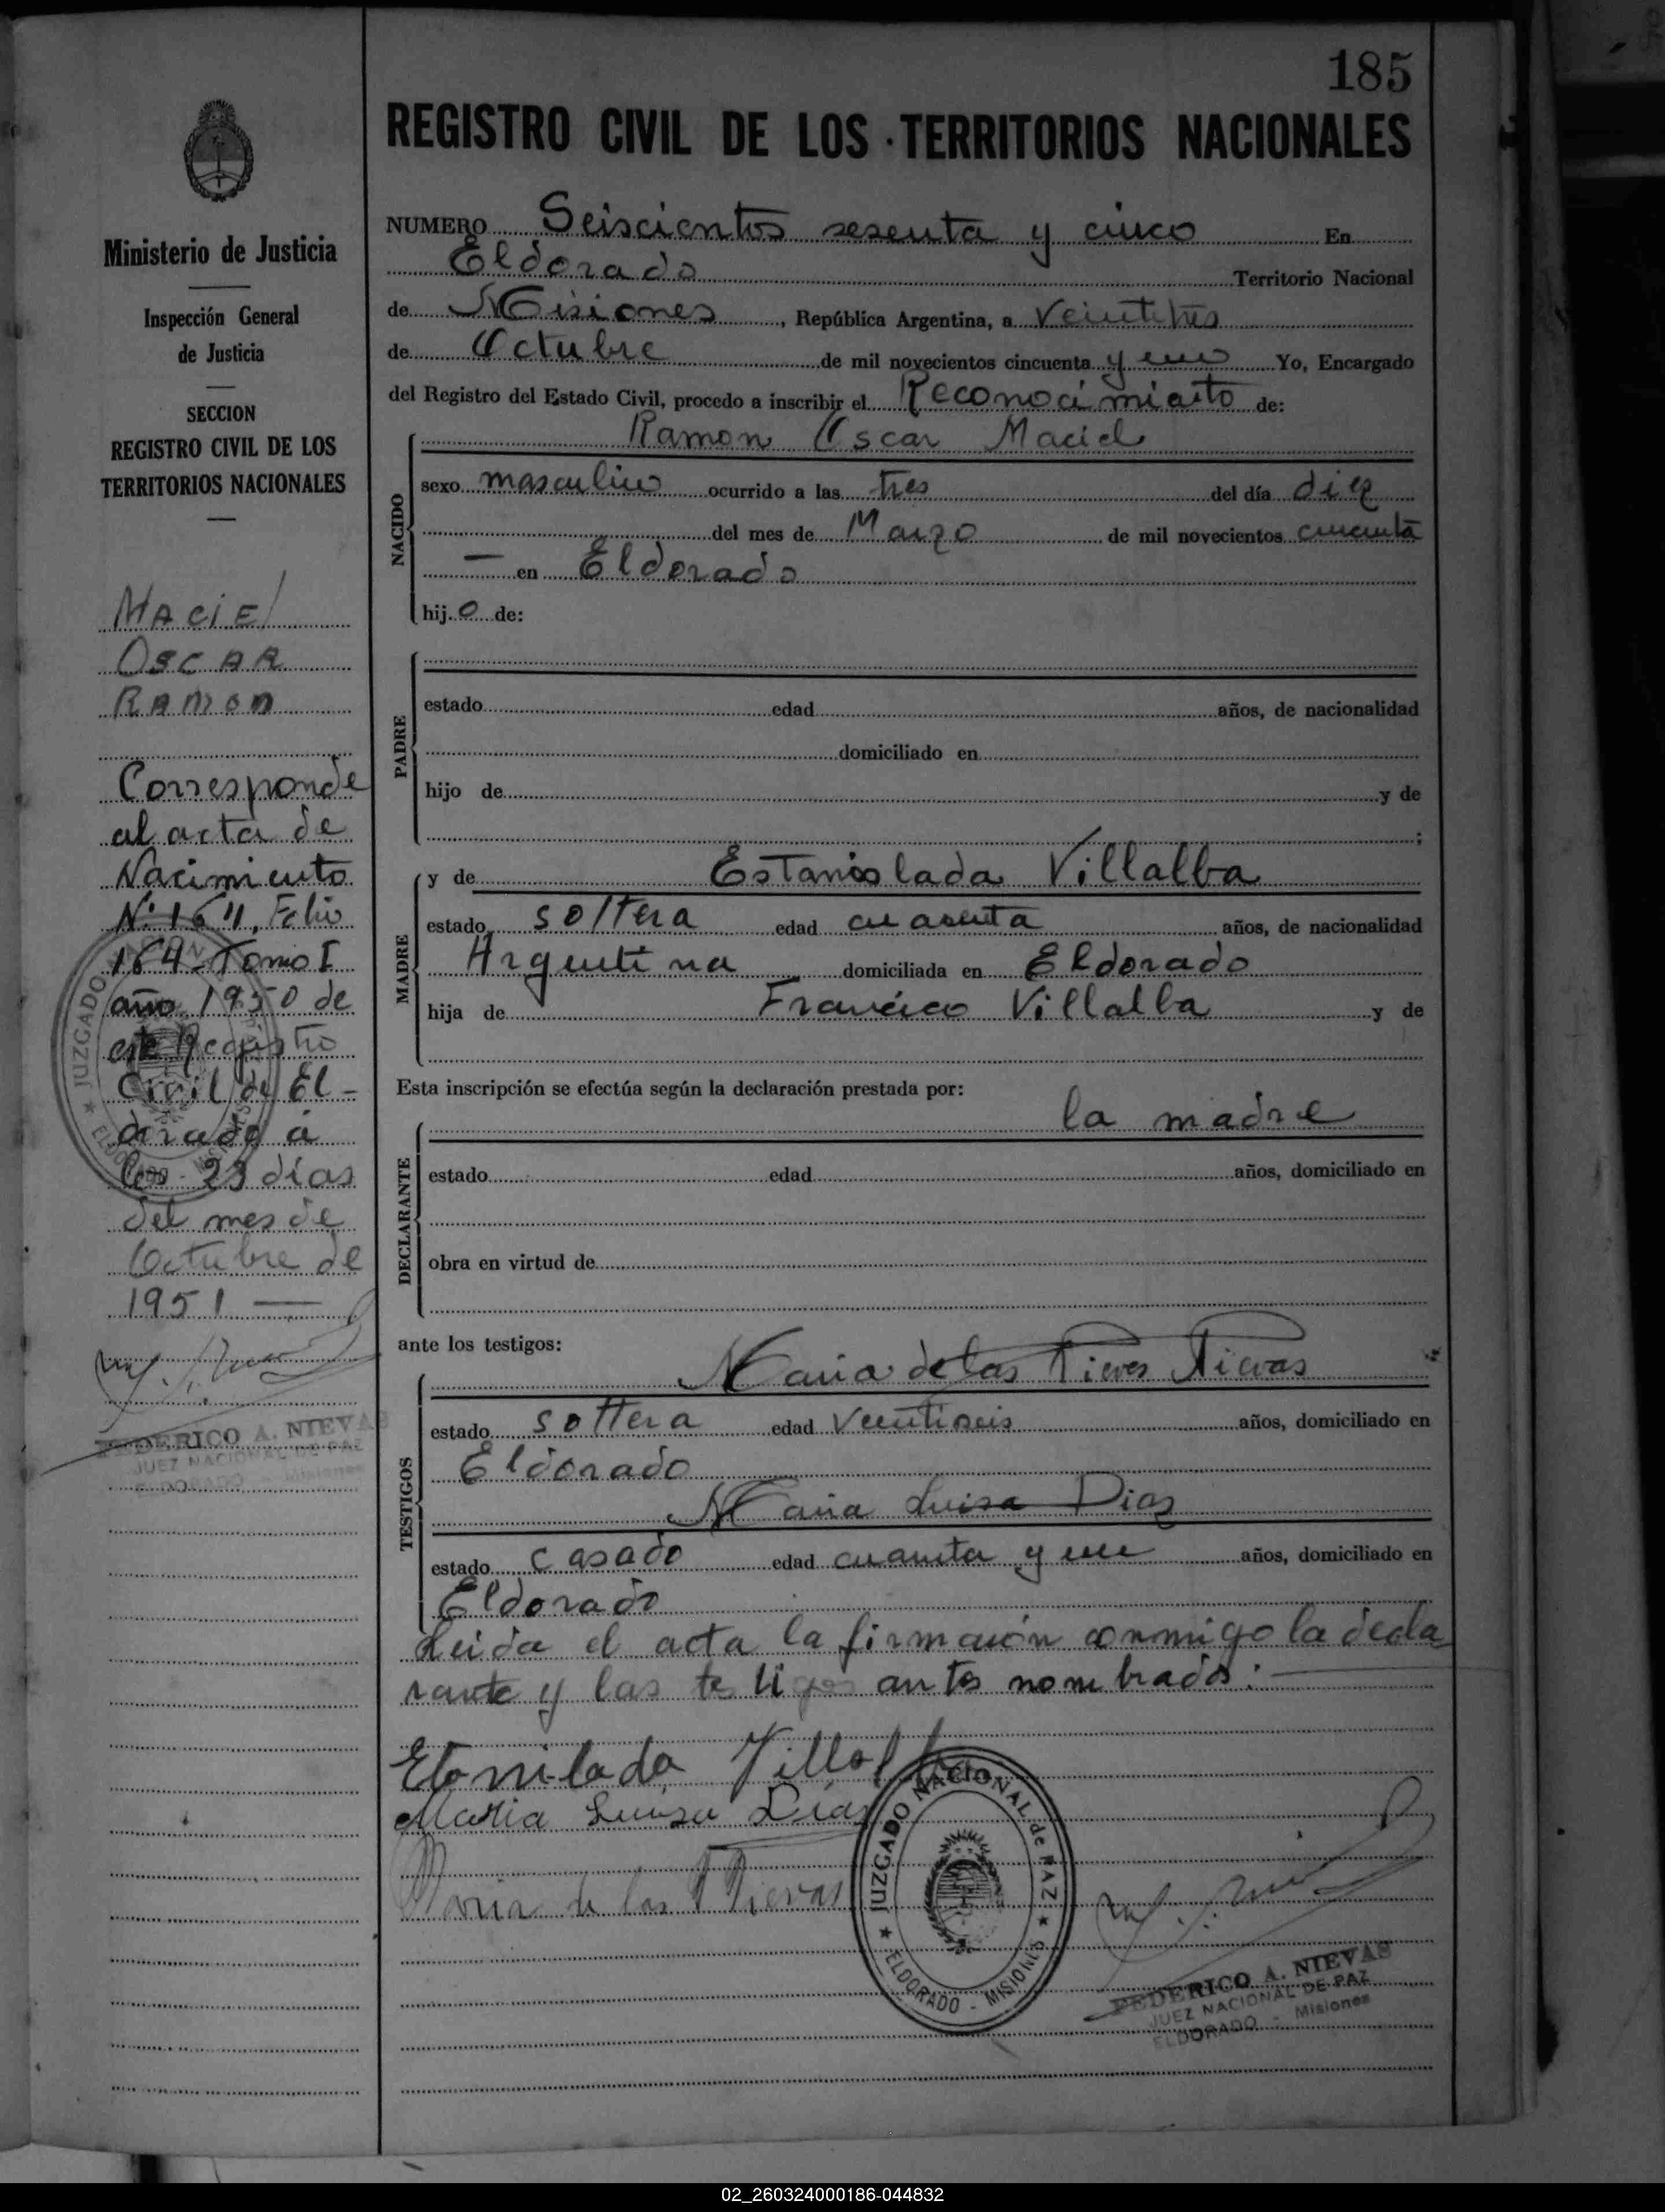 185
REGISTRO CIVIL DE LOS TERRITORIOS NACIONALES
Ministerio de Justicia
Inspección General
de Justicia
SECCION
REGISTRO CIVIL DE LOS
TERRITORIOS NACIONALES
MACIEL
OSCAR
RAMON
Corresponde
al acta de
Nacimiento
Folio
164 - Tomo I
año 1950 de
este Registro
Civil de El-
dorado a
los 23 días
del mes de
Octubre de
1951 —
FEDERICO A. NIEVAS
JUEZ NACIONAL DE PAZ
ELDORADO - Misiones
JUZGADO
NUMERO Seiscientos sesenta y cinco En
Eldorado Territorio Nacional
de Misiones, República Argentina, a Veintitres
de Octubre de mil novecientos cincuenta y uno Yo, Encargado
del Registro del Estado Civil, procedo a inscribir el Reconocimiento de:
NACIDO
Ramon Oscar Maciel
sexo masculino ocurrido a las tres del día diez
del mes de Marzo de mil novecientos cincuenta
— en Eldorado
hijo de:
PADRE
estado edad años, de nacionalidad
domiciliado en
hijo de y de
;
MADRE
y de Estanislada Villalba
estado soltera edad cuarenta años, de nacionalidad
Argentina domiciliada en Eldorado
hija de Francisco Villalba y de
Esta inscripción se efectúa según la declaración prestada por:
DECLARANTE
la madre
estado edad años, domiciliado en
obra en virtud de
ante los testigos:
TESTIGOS
Maria de las Nieves Nievas
estado soltera edad veintiseis años, domiciliado en
Eldorado
Maria Luisa Diaz
estado casado edad cuarenta y un años, domiciliado en
Eldorado
Leida el acta la firmaron conmigo la decla
rante y las testigos antes nombrados: —
Estanilada Villalba
Maria Luisa Diaz
Maria de las N Nievas
JUZGADO NACIONAL de PAZ
★ ELDORADO - MISIONES ★
FEDERICO A. NIEVAS
JUEZ NACIONAL DE PAZ
ELDORADO - Misiones
02_260324000186-044832